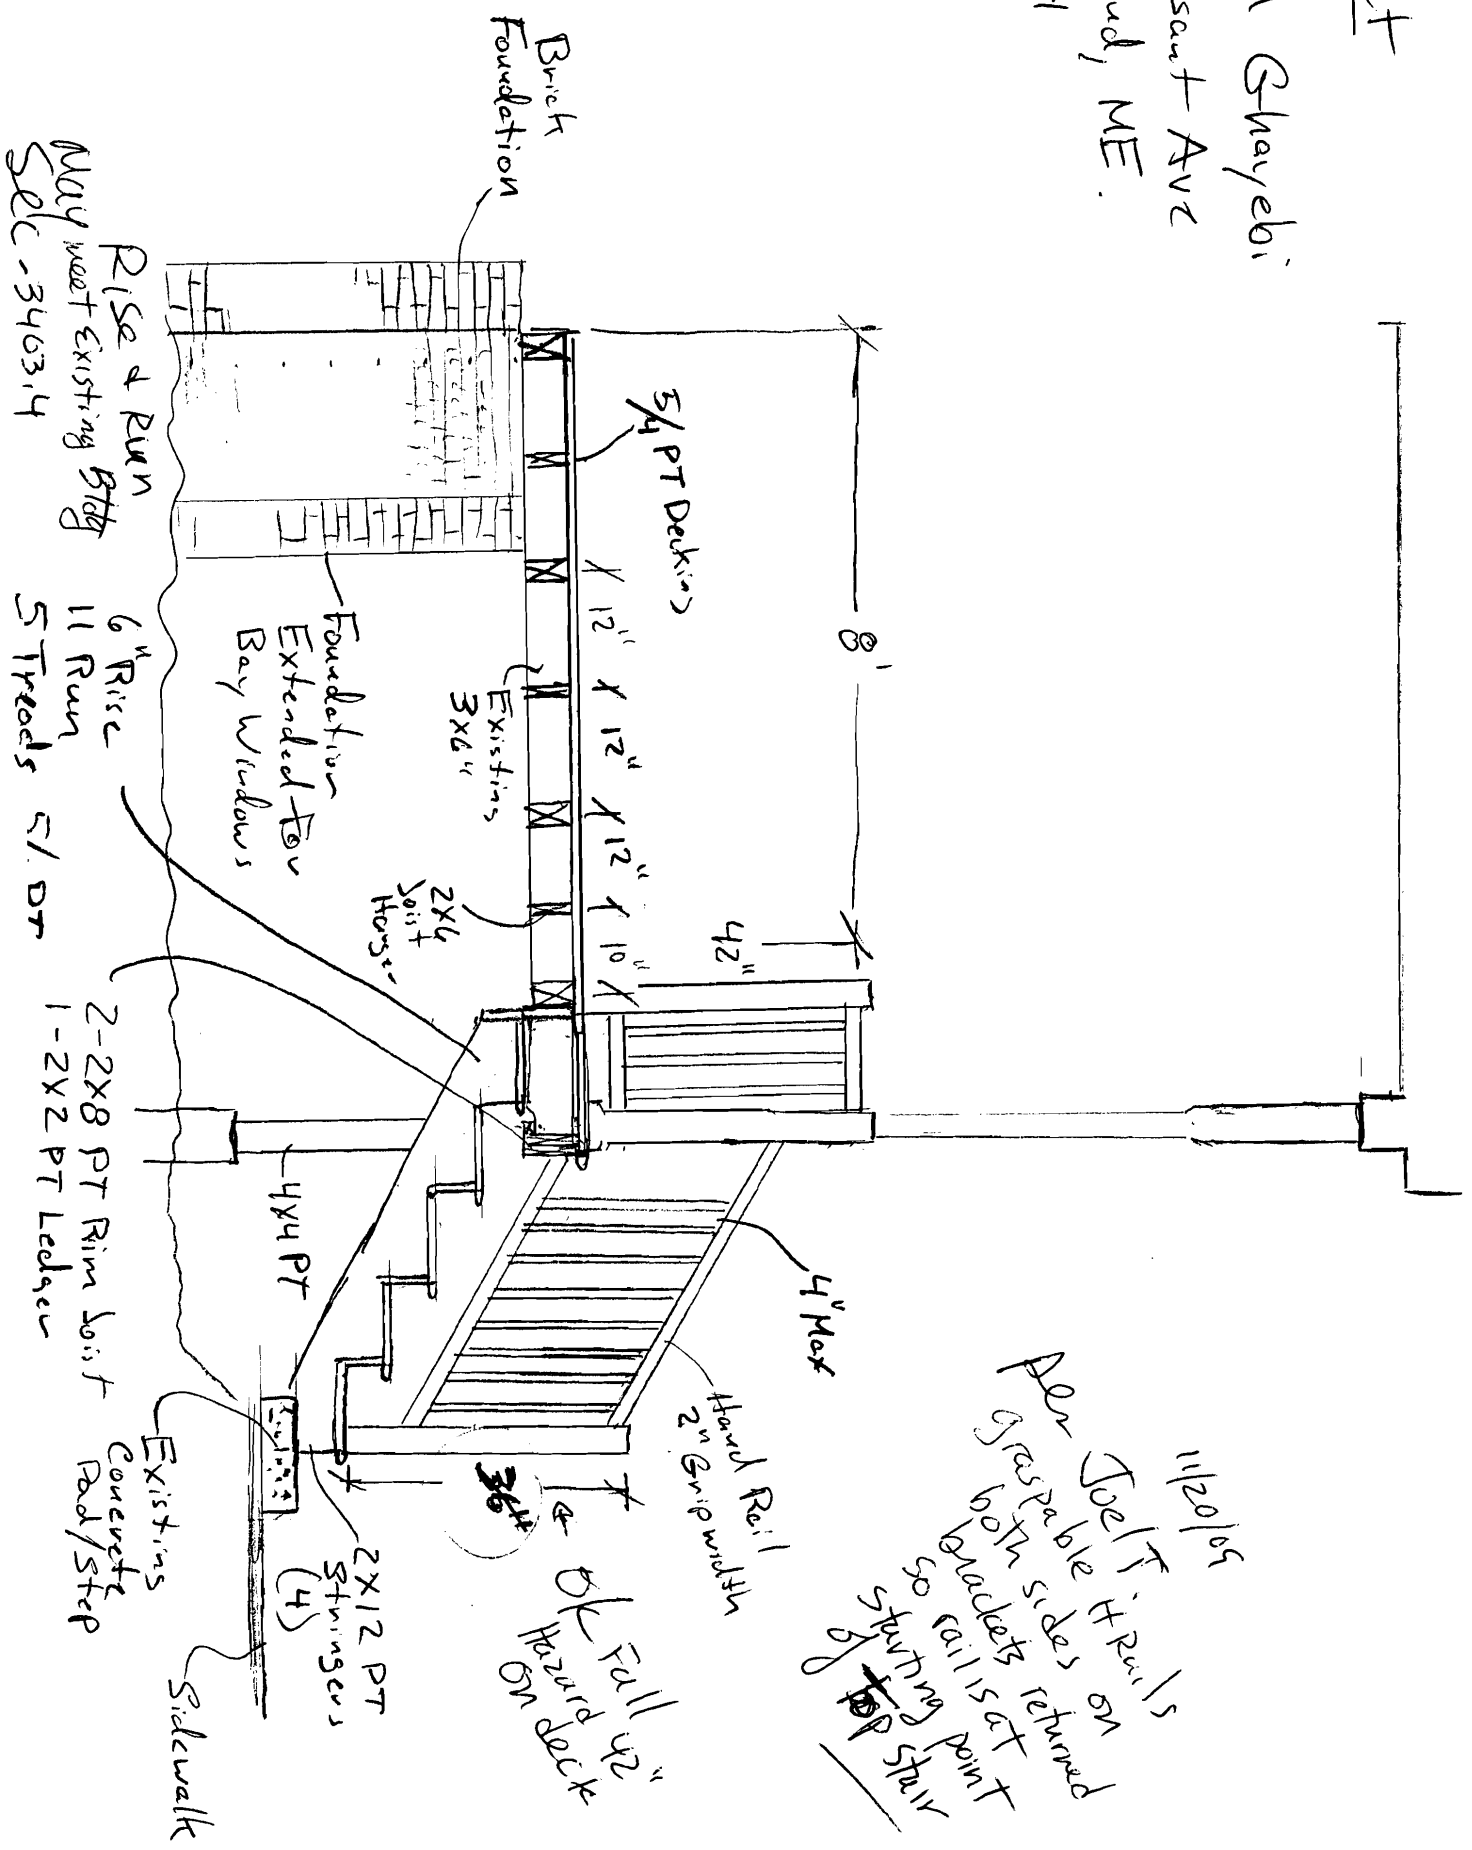 Ghayebi
Ave
ME.
Brick
Foundation
5/4 PT Decking
8'
12"
12"
12"
10"
42"
Existing
3x6"
2x6
Joist
Hanger
Foundation
Extended For
Bay Windows
Rise & Run
May meet Existing Bldg
Sec - 3403.4
6" Rise
11 Run
5 Treads
2-2x8 PT Rim Joist
1-2x2 PT Ledger
4x4 PT
4" Max
Hand Rail
2" Grip width
36"
OK Fall
Hazard 42"
on deck
2x12 PT
Stringers
(4)
Existing
Concrete
Pad/Step
Sidewalk
11/20/09
Per Joel T
graspable H Rails
both sides on
brackets returned
so rail is at
starting point
of top stair